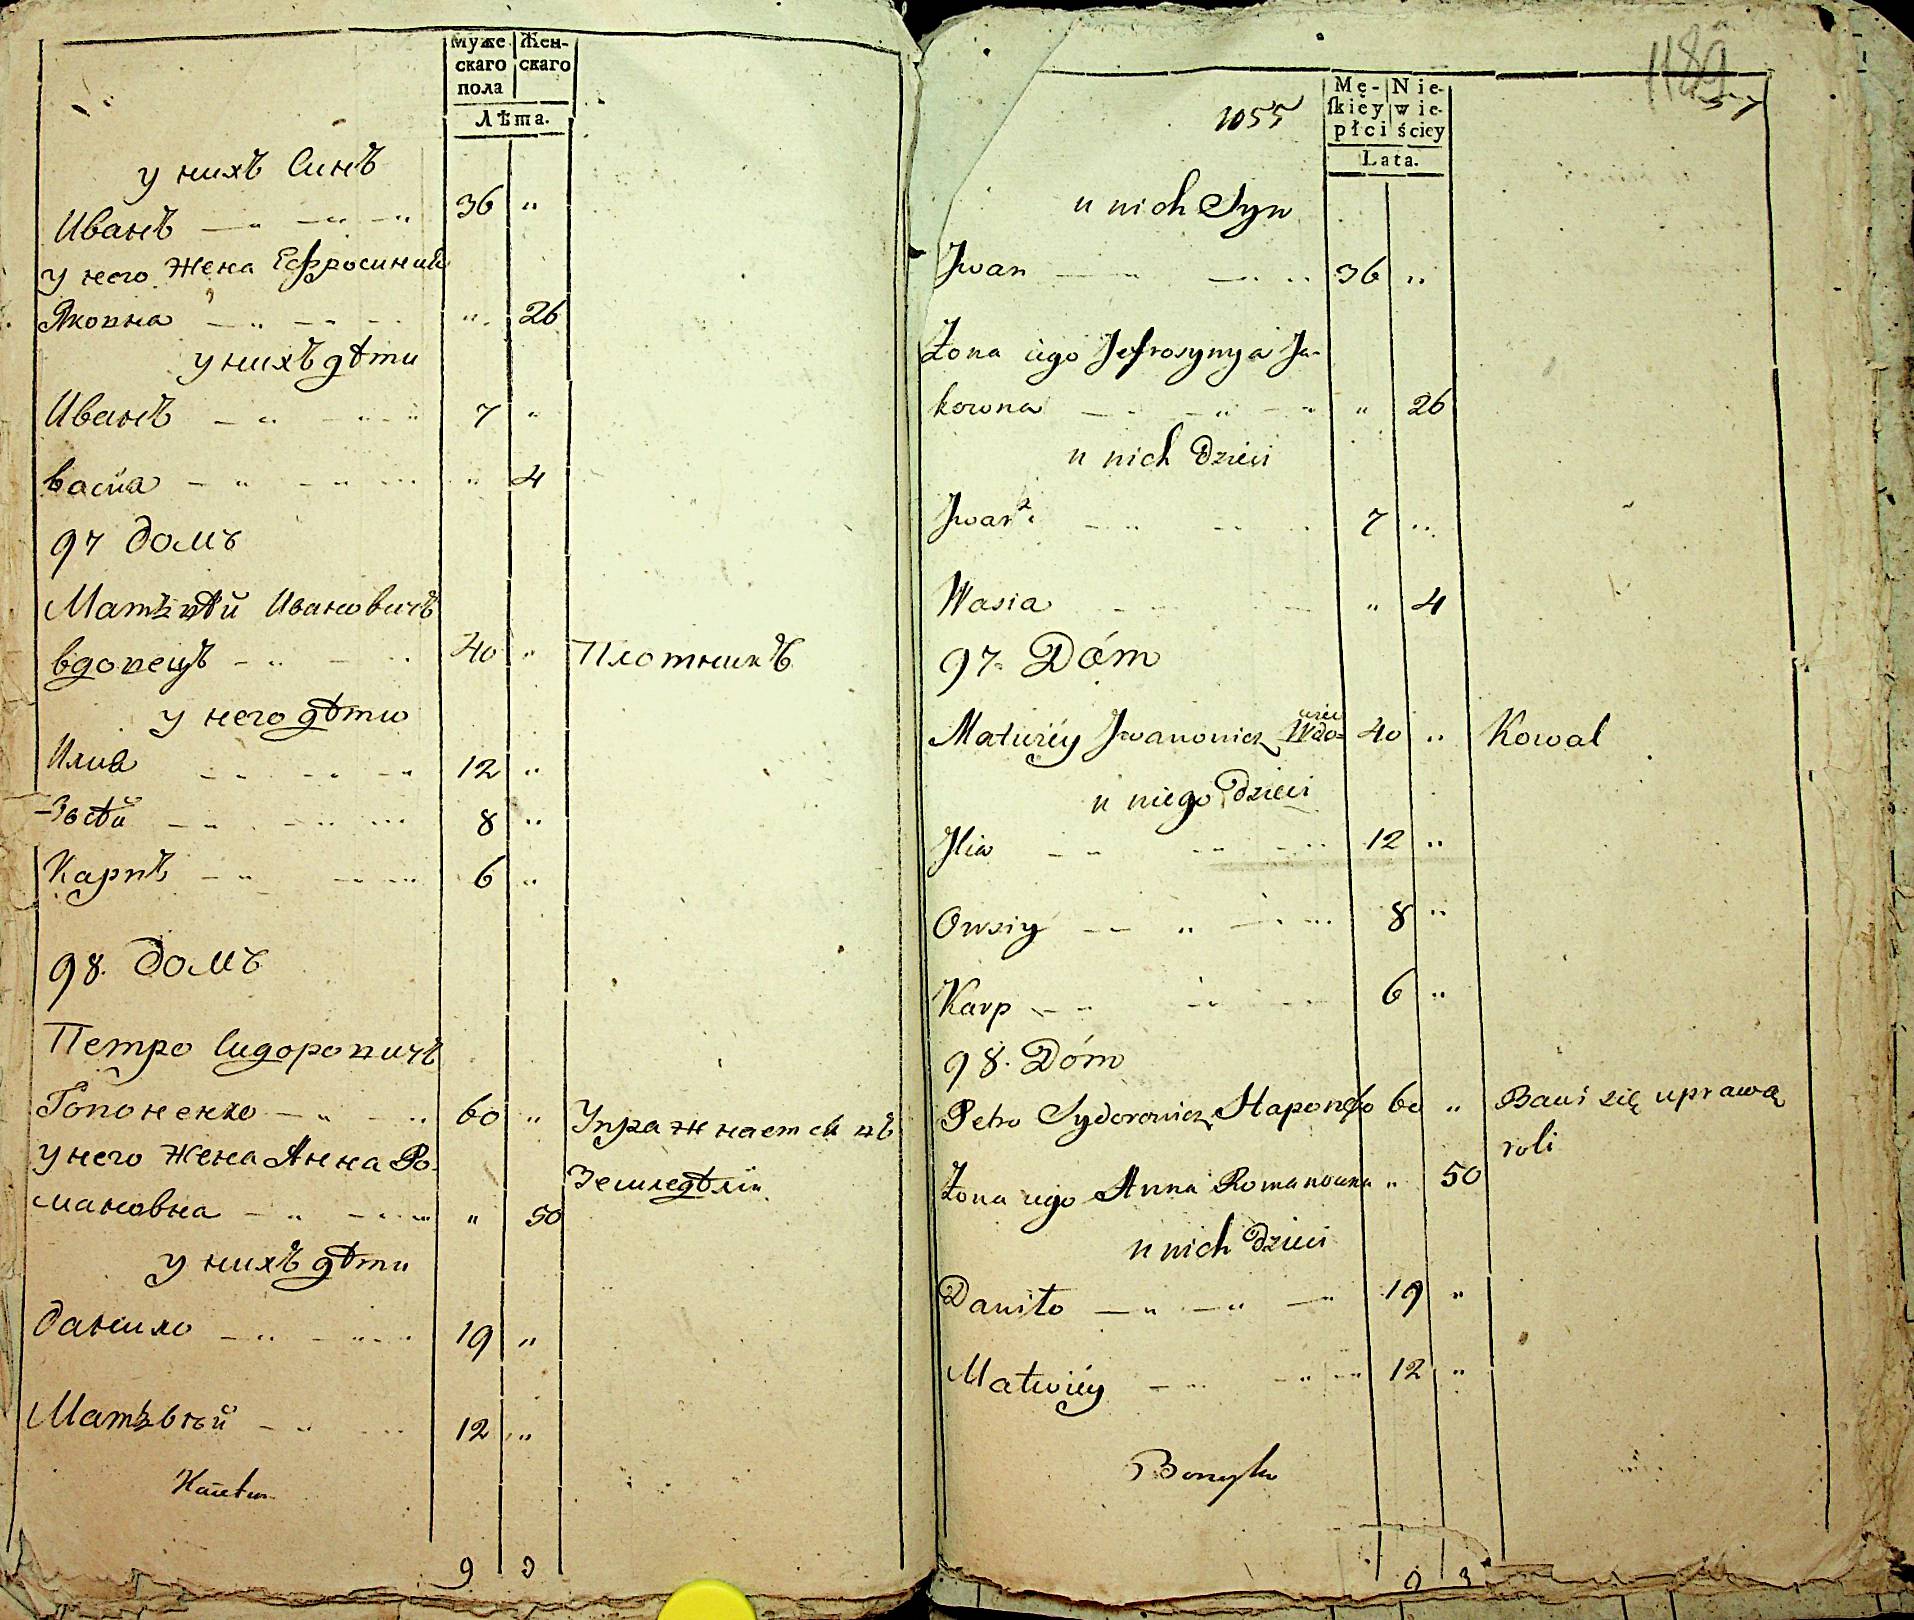 Муже- Жен-
скаго скаго
пола
Лѣта.
у нихъ Синъ
Иванъ 36 "
у него Жена Ефросинія
Яковна " 26
у нихъ дѣти
Иванъ 7 "
Васия " 4
97 Домъ
Матвѣй Ивановичъ
вдовецъ 40 " Плотникъ
у него дѣти
Илия 12 "
8 "
Карпъ 6 "
98. Домъ
Петро Сидоровичъ
Гопоненко 60 " Упражнается въ
Земледѣліи
у него Жена Анна Ро-
мановна " 50
у нихъ дѣти
Данило 19 "
Матвѣй 12 "
9 3
118а
57
1055
Mę- Nie-
ſkiey wie-
płci ściey
Lata.
u nich Syn
Jwan 36 "
Żona iego Jefrosynya Ja-
kowna " 26
u nich Dzieci
Jwan 2. 7 "
Wasia " 4
97. Dóm
Matwiéy Jwanowicz Wdo-
wiec 40 " Kowal
u niego Dzieci
Jlia 12 "
Owsiy 8 "
Karp 6 "
98. Dóm
Petro Sydorowicz Haponenko 60 " Bawi się uprawą
roli
Żona iego Anna Romanowna " 50
u nich Dzieci
Daniło 19 "
Matwiéy 12 "
9 3